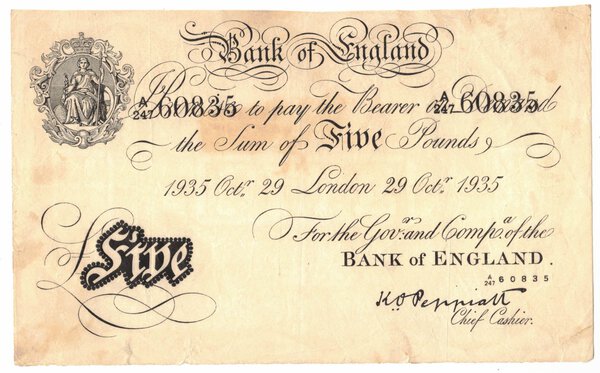 Bank of England
I Promise to pay the Bearer on Demand
A/247 60835 A/247 60835
the Sum of Five Pounds
1935 Octr. 29 London 29 Octr. 1935
For the Govr. and Compa. of the
BANK of ENGLAND.
A/247 60835
£Five
K.O. Peppiatt
Chief Cashier.